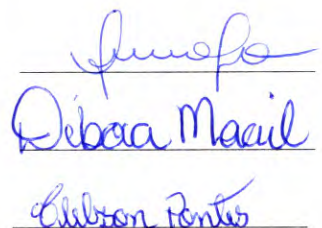 Débora Maciel
Clebson Pontes